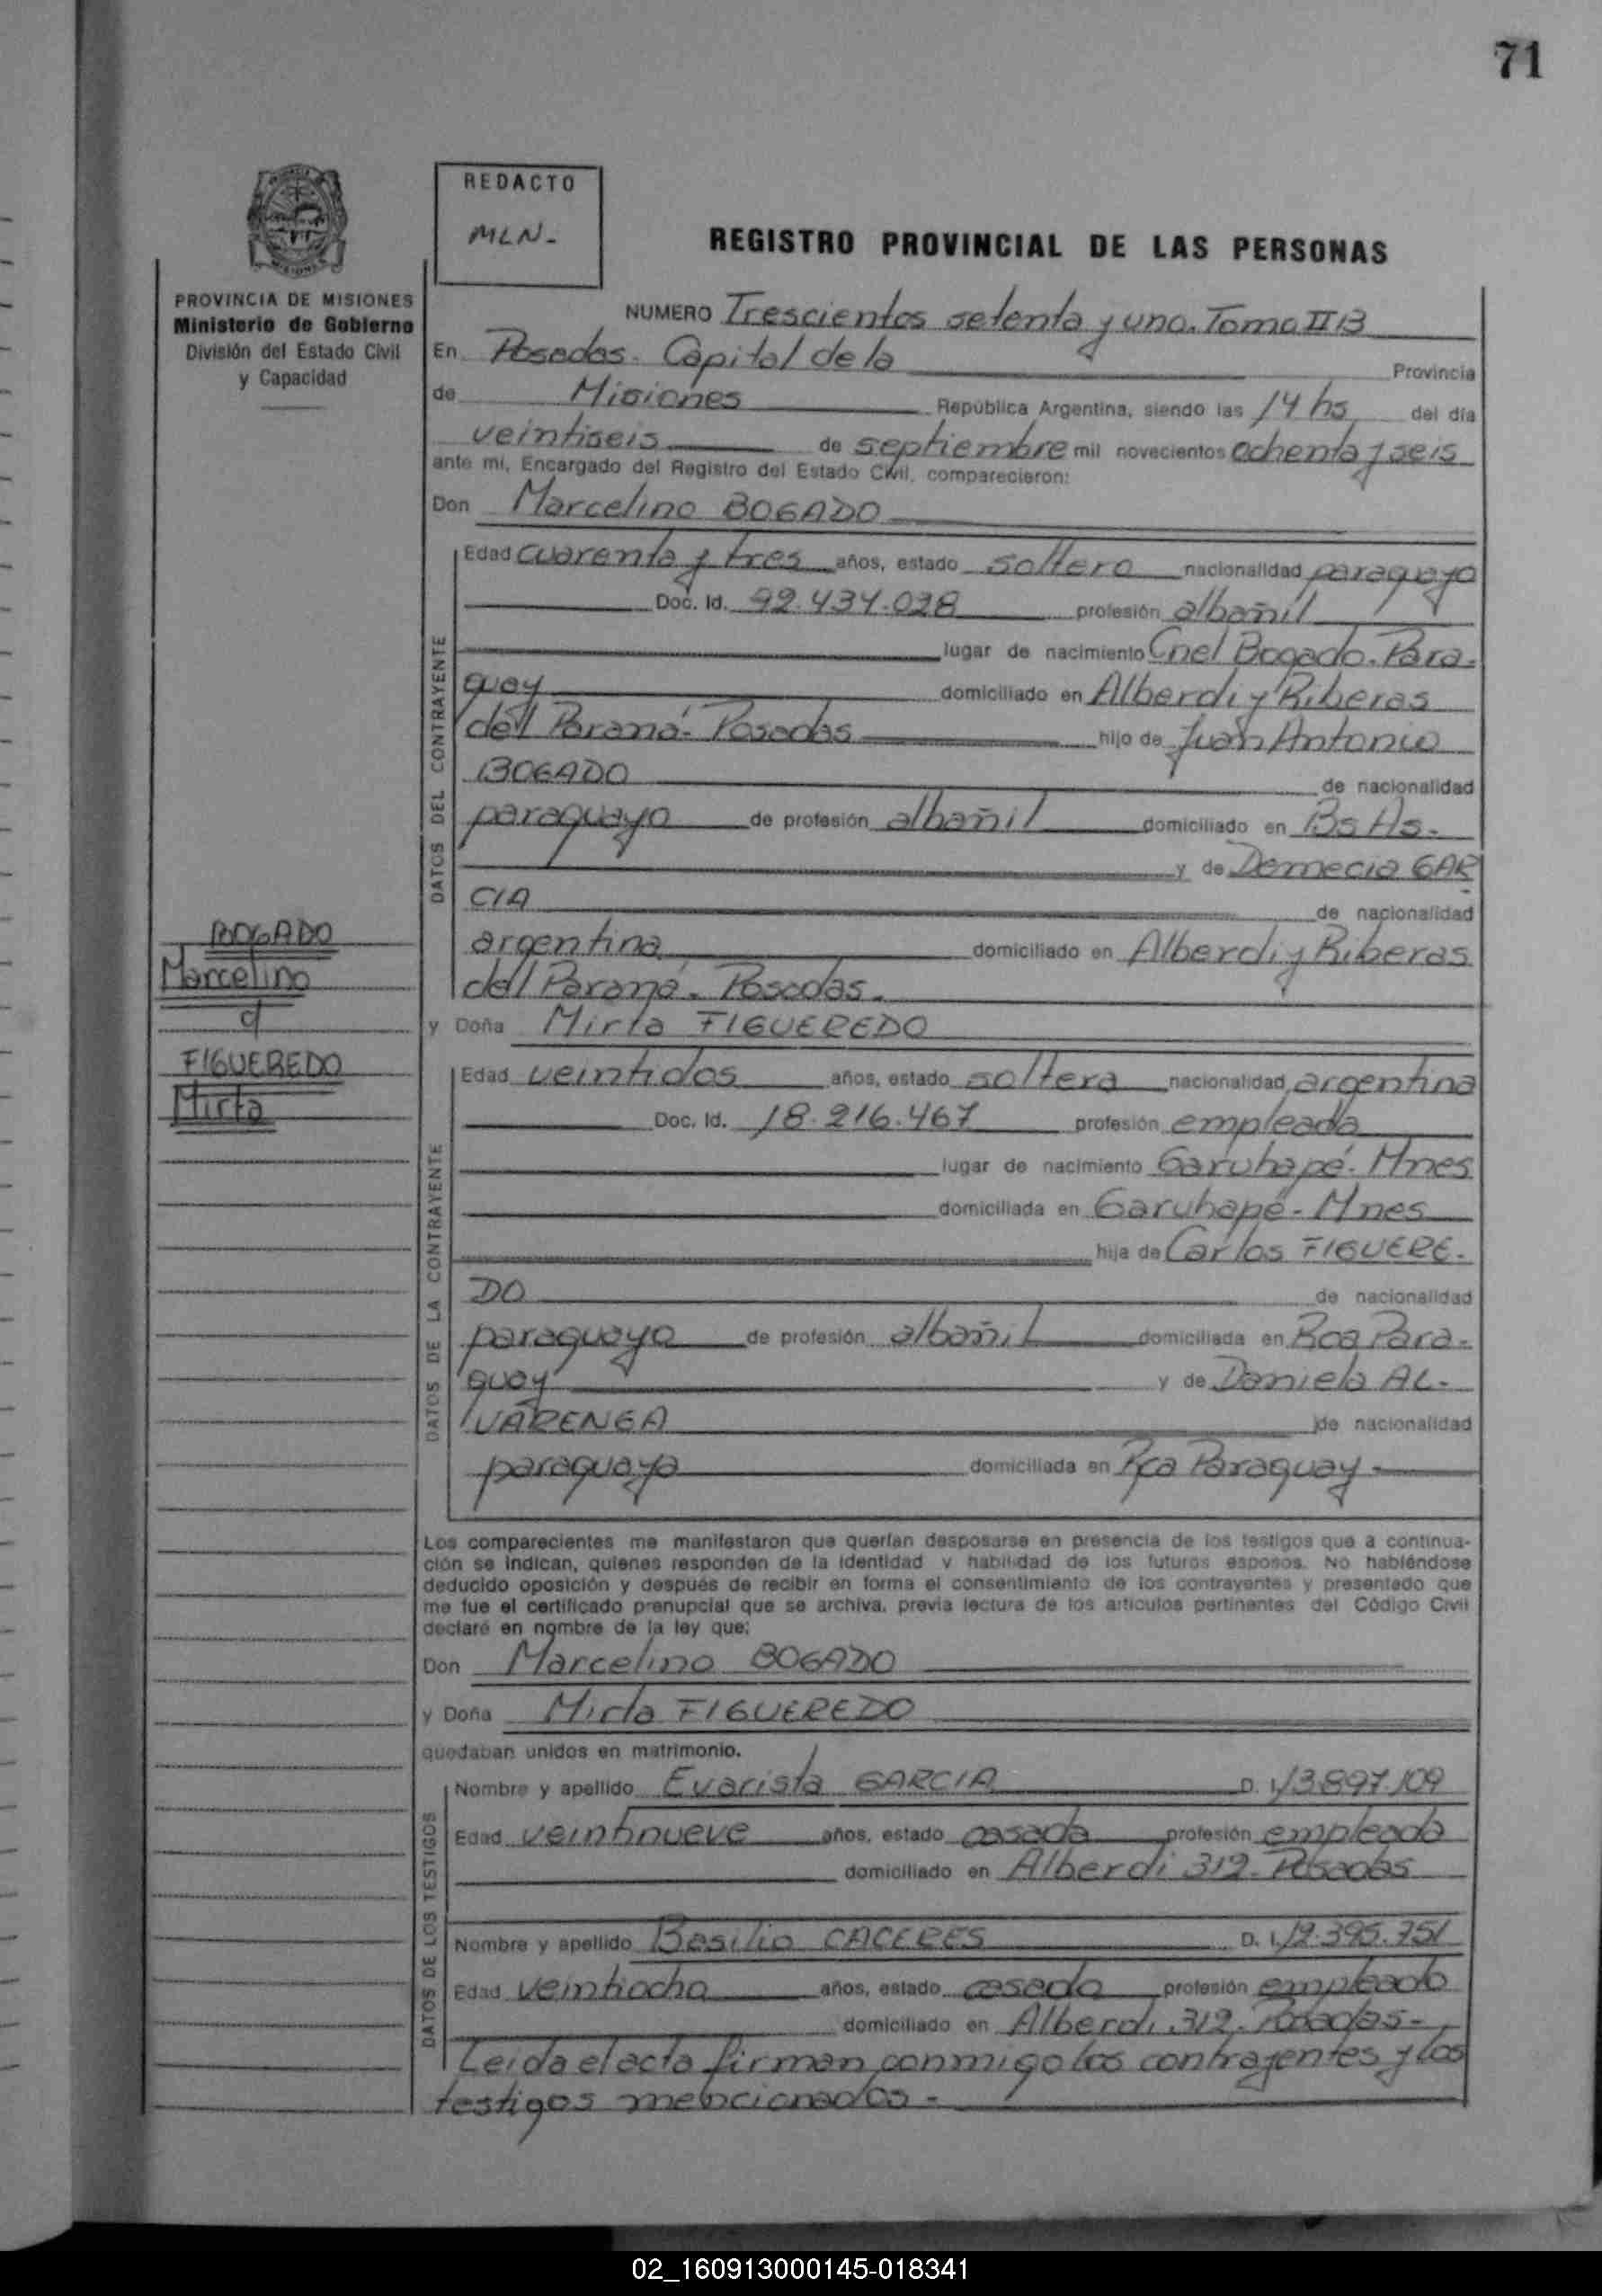 71
REDACTO
MLN-
REGISTRO PROVINCIAL DE LAS PERSONAS
PROVINCIA DE MISIONES
Ministerio de Gobierno
División del Estado Civil
y Capacidad
NUMERO Trescientos setenta y uno. Tomo II B
En Posadas. Capital de la Provincia
de Misiones República Argentina, siendo las 14 hs del día
veintiseis de septiembre mil novecientos ochenta y seis
ante mí, Encargado del Registro del Estado Civil, comparecieron:
Don Marcelino BOGADO
DATOS DEL CONTRAYENTE
Edad cuarenta y tres años, estado soltero nacionalidad paraguayo
Doc. Id. 92.434.028 profesión albañil
lugar de nacimiento Cnel Bogado. Para-
guay domiciliado en Alberdi y Riberas
del Paraná- Posadas hijo de Juan Antonio
BOGADO de nacionalidad
paraguayo de profesión albañil domiciliado en Bs As.
y de Demecia GAR
CIA de nacionalidad
argentina domiciliado en Alberdi y Riberas
del Paraná. Posadas.
BOGADO
Marcelino
c/
FIGUEREDO
Mirta
y Doña Mirta FIGUEREDO
DATOS DE LA CONTRAYENTE
Edad veintidos años, estado soltera nacionalidad argentina
Doc. Id. 18.216.467 profesión empleada
lugar de nacimiento Garuhapé. Mnes
domiciliada en Garuhapé- Mnes
hija de Carlos FIGUERE-
DO de nacionalidad
paraguayo de profesión albañil domiciliada en Rca Para-
guay y de Daniela AL-
VARENGA de nacionalidad
paraguaya domiciliada en Rca Paraguay-
Los comparecientes me manifestaron que querían desposarse en presencia de los testigos que a continua-
ción se indican, quienes responden de la identidad y habilidad de los futuros esposos. No habiéndose
deducido oposición y después de recibir en forma el consentimiento de los contrayentes y presentado que
me fue el certificado prenupcial que se archiva, previa lectura de los artículos pertinentes del Código Civil
declaré en nombre de la ley que:
Don Marcelino BOGADO
y Doña Mirta FIGUEREDO
quedaban unidos en matrimonio.
DATOS DE LOS TESTIGOS
Nombre y apellido Evarista GARCIA D. I. 13.897.109
Edad veintinueve años, estado casada profesión empleada
domiciliado en Alberdi 312- Posadas
Nombre y apellido Basilio CACERES D. I. 12.395.751
Edad veintiocho años, estado casado profesión empleado
domiciliado en Alberdi 312. Posadas-
Leida el acta firman conmigo los contrayentes y los
testigos mencionados-
02_160913000145-018341